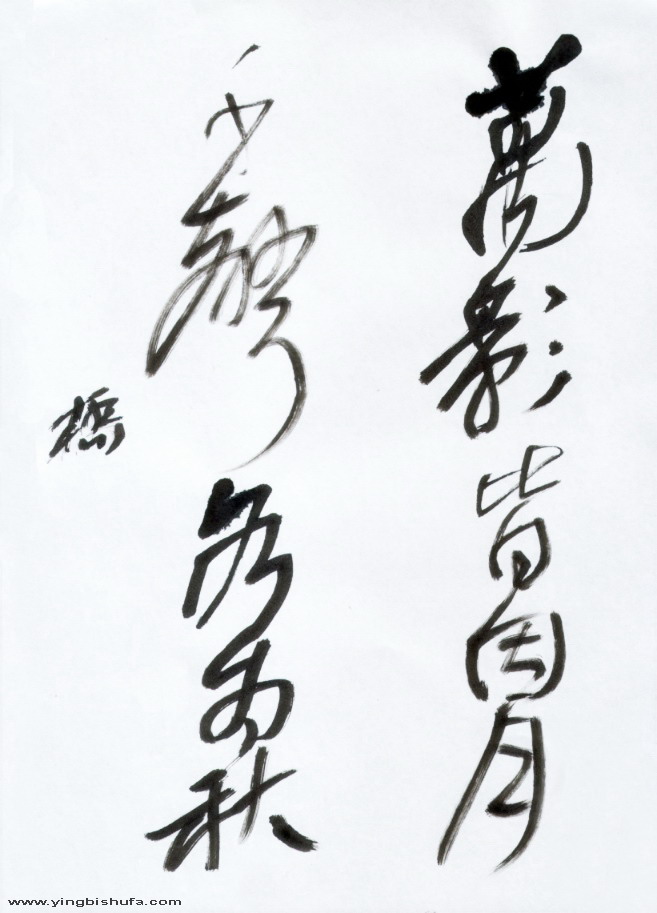 萬影皆因月
千聲各為秋
www.yingbishufa.com